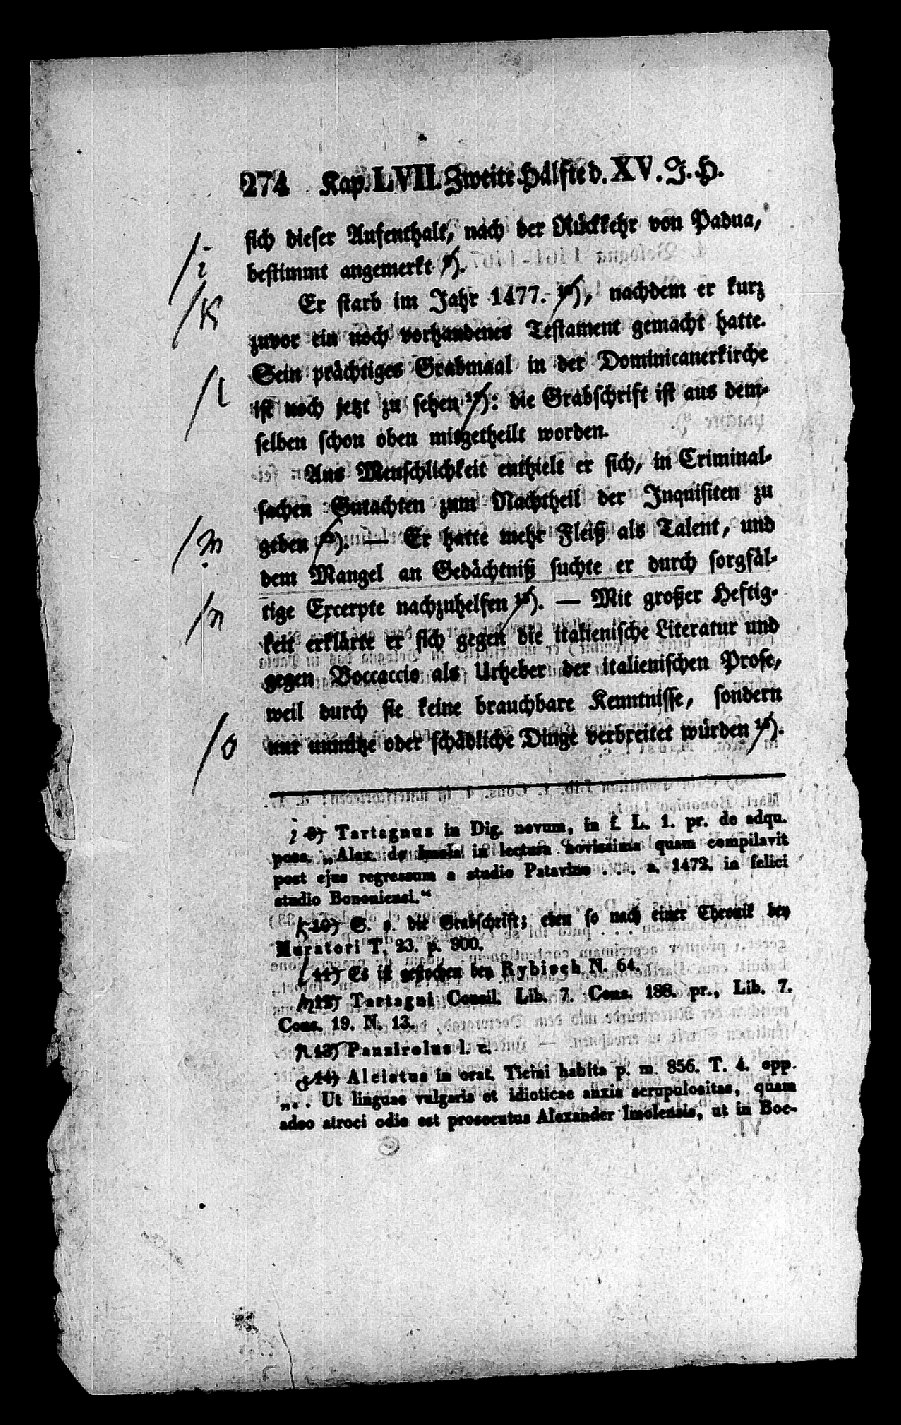 274 Kap. LVII. Zweite Hälfte d. XV. J. H.
sich dieser Aufenthalt, nach der Rückkehr von Padua,
/i bestimmt angemerkt 9).
/k Er starb im Jahr 1477. 10), nachdem er kurz
zuvor ein noch vorhandenes Testament gemacht hatte.
Sein prächtiges Grabmaal in der Dominicanerkirche
/l ist noch jetzt zu sehen 11): die Grabschrift ist aus dem-
selben schon oben mitgetheilt worden.
Aus Menschlichkeit enthielt er sich, in Criminal-
sachen Gutachten zum Nachtheil der Inquisiten zu
/m geben 12). — Er hatte mehr Fleiß als Talent, und
dem Mangel an Gedächtniß suchte er durch sorgfäl-
/n tige Excerpte nachzuhelfen 13). — Mit großer Heftig-
keit erklärte er sich gegen die italienische Literatur und
gegen Boccaccio als Urheber der italienischen Prose,
weil durch sie keine brauchbare Kenntnisse, sondern
/o nur unnütze oder schädliche Dinge verbreitet würden 14).
i 9) Tartagnus in Dig. novum, in f. L. 1. pr. de adqu.
poss. „Alex. de Imola in lectura novissima quam compilavit
post ejus regressum a studio Patavino . . . a. 1472. in felici
studio Bononiensi.“
k 10) S. o. die Grabschrift; eben so nach einer Chronik bey
Muratori T. 23. p. 900.
l 11) Es ist gestochen bey Rybisch N. 64.
m 12) Tartagni Consil. Lib. 7. Cons. 188. pr., Lib. 7.
Cons. 19. N. 13.
n 13) Panzirolus l. c.
o 14) Alciatus in orat. Ticini habita p. m. 856. T. 4. opp.
„. . Ut linguae vulgaris et idioticae anxia scrupulositas, quam
adeo atroci odio est prosecutus Alexander Imolensis, ut in Boc-